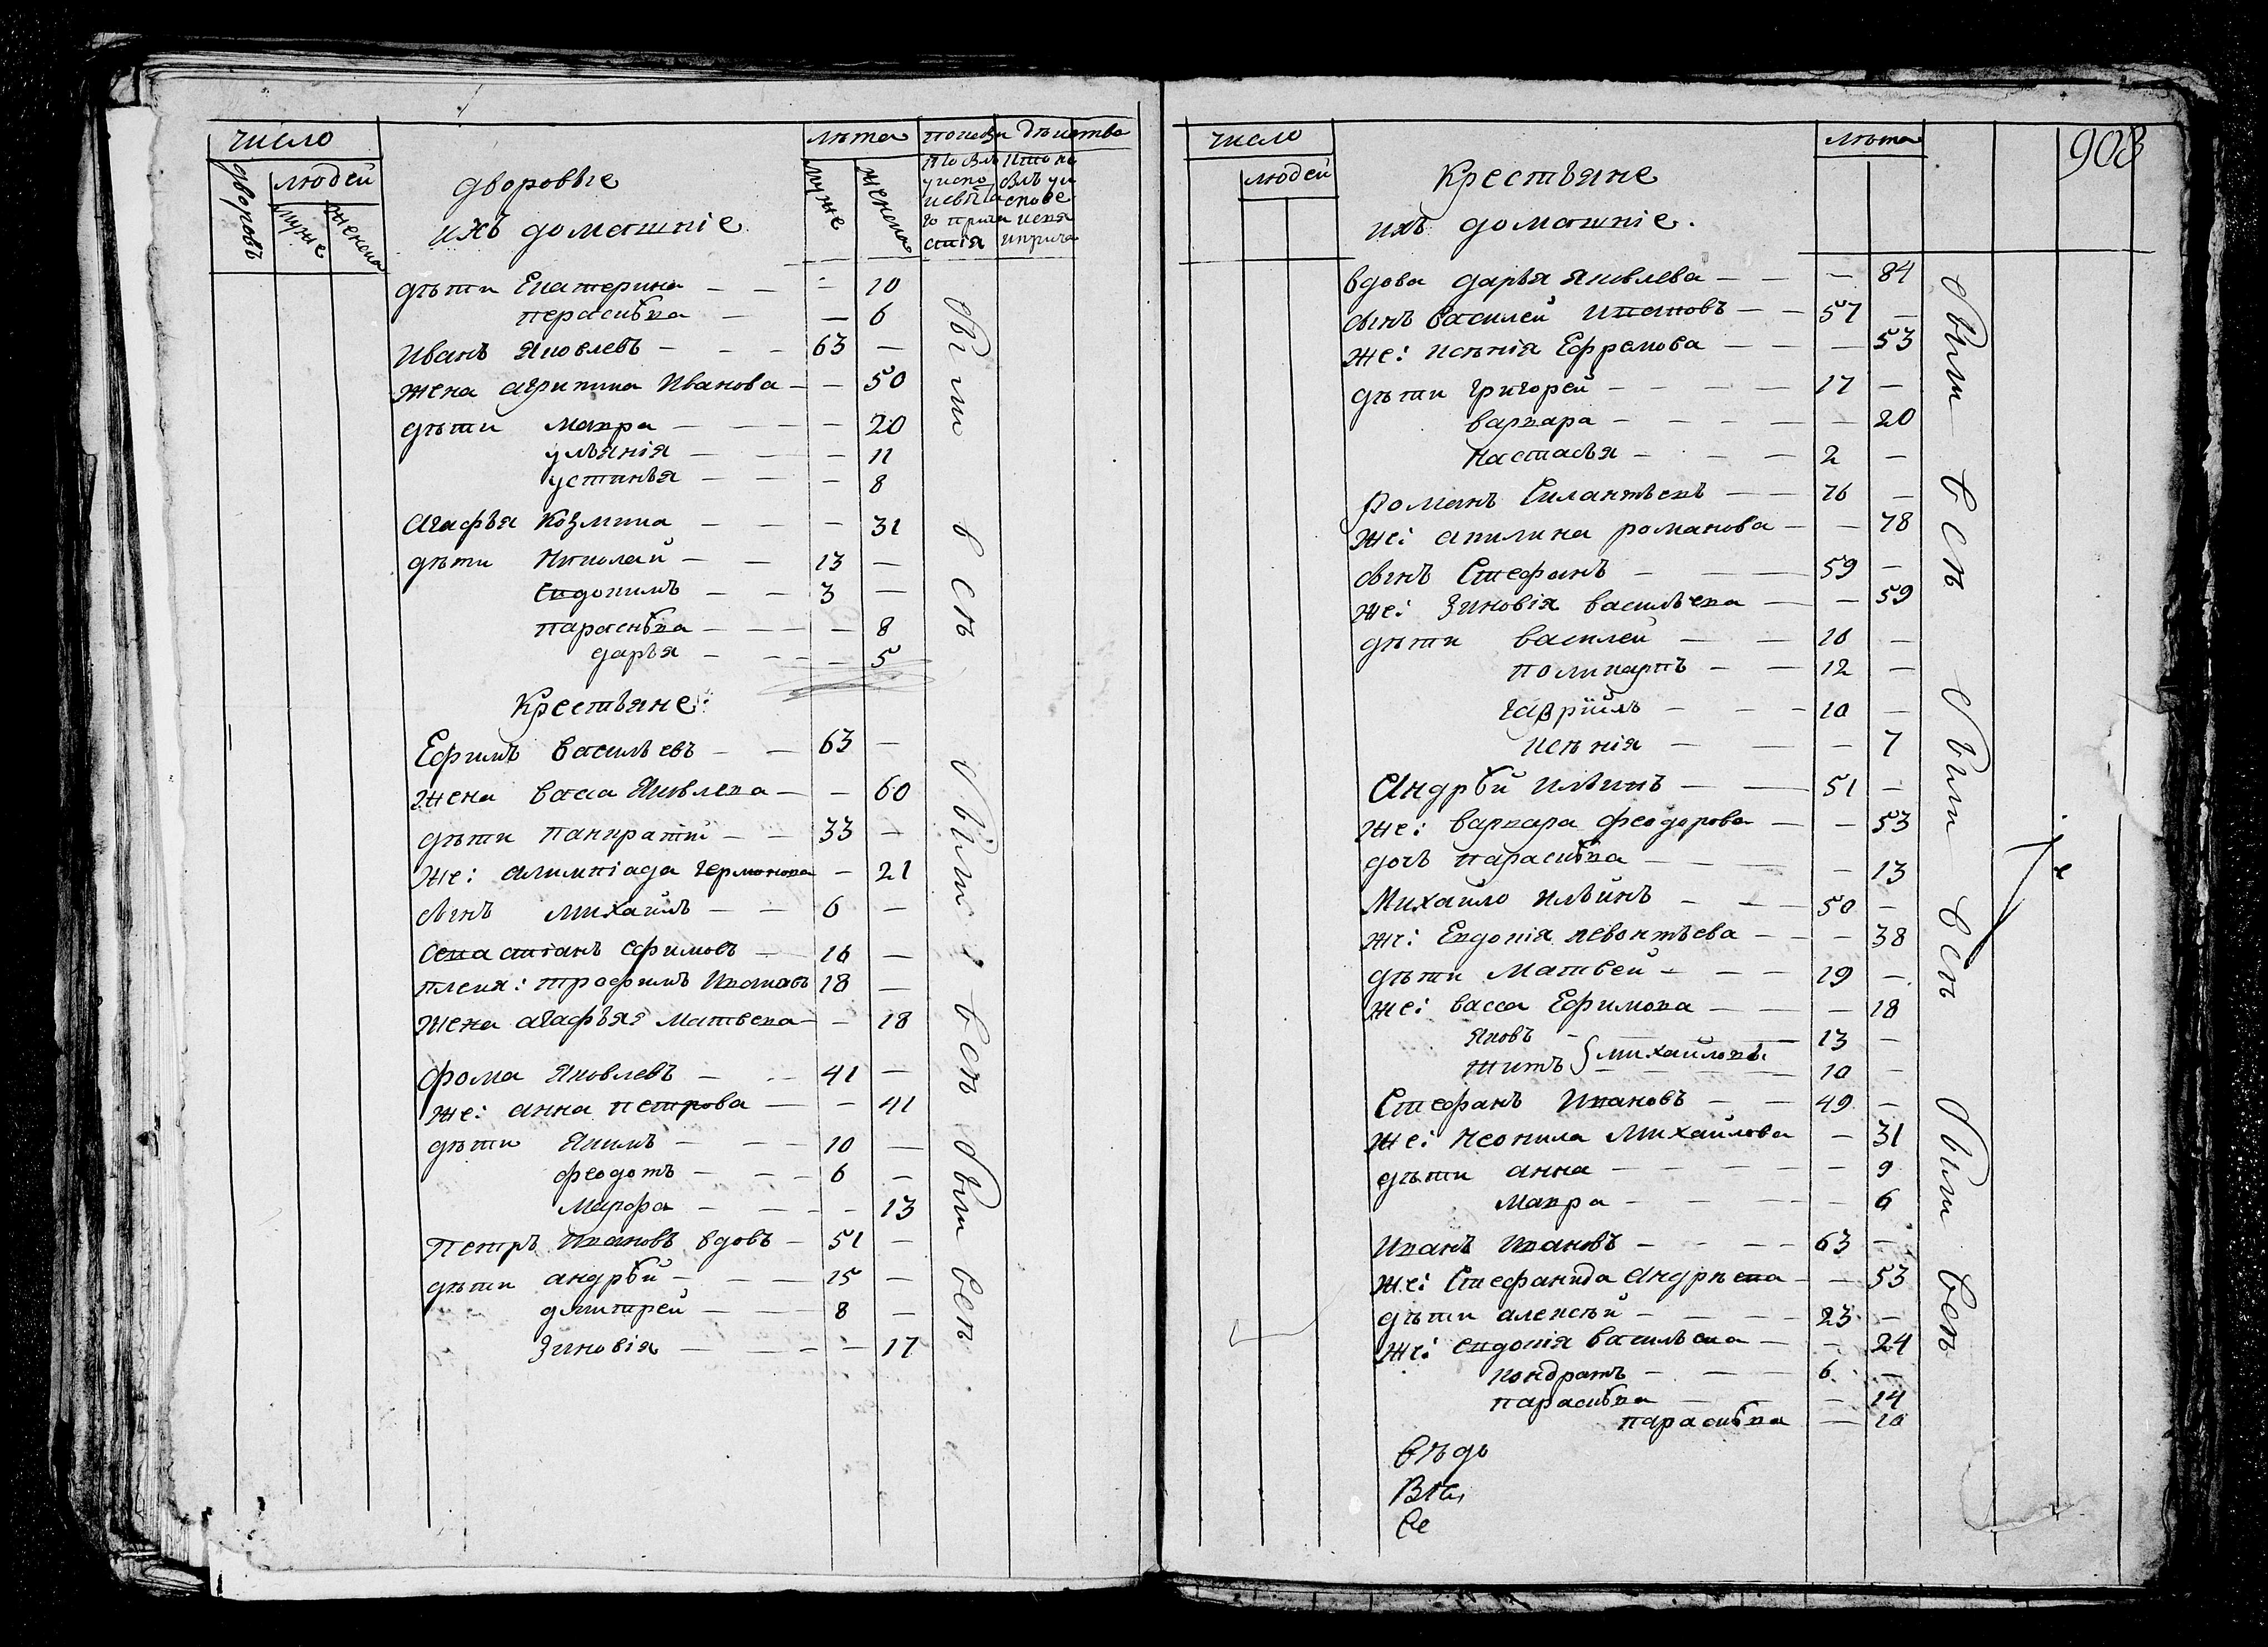 число
людей
дворовъ
муже
женска
дворовые
ихъ домашніе
лѣта
муже
женска
дѣти Екатерина — — — 10
перасковва — — 6
Иванъ Яковлевъ — — — 63 —
жена агрипина Иванова — — 50
дѣти мавра — — — — 20
ульянія — — — 11
устинья — — — 8
Агафья Козмина — — — 31
дѣти Николай — — 13 —
Евдокимъ — — 3 —
парасковва — — — — 8
дарья — — — — 5
Крестьяне:
Ефимъ Васильевъ — — 63 —
жена васа Яковлева — — 60
дѣти панкратій — — 33 —
же: алимпіада Германова — 21
сынъ михаилъ — — 6 —
Севастіанъ Ефимовъ — 16 —
племя: трофимъ Ивановъ 18 —
жена агафья Матвева — — 18
Фома Яковлевъ — — 41 —
же: анна петрова — — 41
дѣти Якимъ — — — 10 —
феодотъ — — — 6 —
Марфа — — — — 13
Петръ Ивановъ вдовъ — 51 —
дѣти андрѣй — — — 15 —
дмитрей — — — 8 —
Зиновія — — — — 17
были всѣ
были всѣ были всѣ
число
людей
Крестьяне
ихъ домашніе.
лѣта
908
вдова дарья Яковлева — — — 84
сынъ Василей Ивановъ — — 57 —
же: ксѣнія Ефремова — — — 53
дѣти григорей — — — — 17 —
варвара — — — — — 20
Настасья — — — 2 —
Романъ Силантьевъ — — 76 —
же: акилина романова — — 78
сынъ Стефанъ — — — 59 —
же: Зиновія васильева — — 59
дѣти василей — — 16 —
поликарпъ — — 12 —
Гавріилъ — — — 10 —
ксѣнія — — — 7
Андрѣй ильинъ — — 51 —
же: варвара феодорова — — 53
дочь парасковва — — — — 13
Михайло ильинъ — — — 50 —
же: Евдокія левонтьева — — — 38
дѣти матвей — — — 19 —
же: васса Ефимова — — — 18
Яковъ — — 13 —
титъ } михайловы — — 10 —
Стефанъ Ивановъ — — 49 —
же: неонила михайлова — 31
дѣти анна — — — — — — 9
мавра — — — — — 6
Иванъ Ивановъ — — — — 63 —
же: Стефанида Андрѣева — — 53
дѣти алексѣй — — — — 23 —
же: евдокія васильева — — 24
кондратъ — — — 6 —
парасковва — — — — 14
парасковва — — 10
вѣдо
Вѣ
Се
были всѣ были всѣ были всѣ